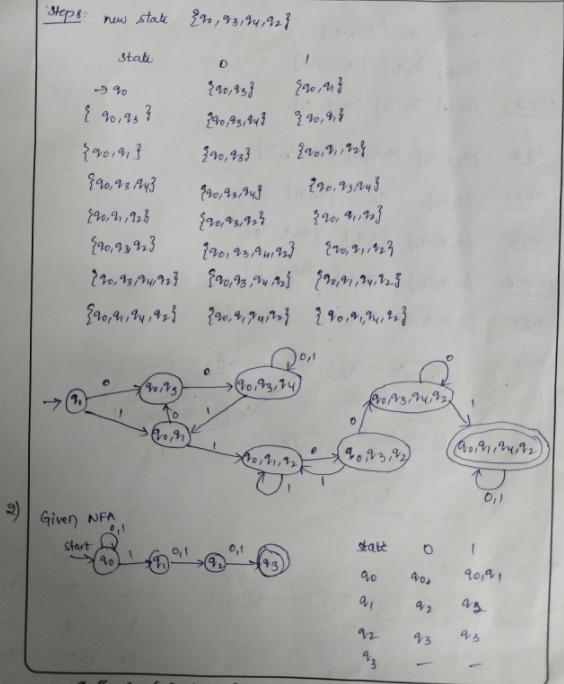 Step 8: new state {q0, q3, q4, q2}
State 0 1
→ q0 {q0,q3} {q0,q1}
{q0,q3} {q0,q3,q4} {q0,q1}
{q0,q1} {q0,q3} {q0,q1,q2}
{q0,q3,q4} {q0,q3,q4} {q0,q3,q4}
{q0,q1,q2} {q0,q3,q2} {q0,q1,q2}
{q0,q3,q2} {q0,q3,q4,q2} {q0,q1,q2}
{q0,q3,q4,q2} {q0,q3,q4,q2} {q0,q1,q4,q2}
{q0,q1,q4,q2} {q0,q1,q4,q2} {q0,q1,q4,q2}
0,1
0
0 q0,q3 0 q0,q3,q4 q0,q3,q4,q2
1 0 1 0 1
q0,q1 1 q0,q1,q2 0 q0,q3,q2 q0,q1,q4,q2
1 1 0,1
2) Given NFA
0,1
start q0 1 q1 0,1 q2 0,1 q3
state 0 1
q0 q0 q0,q1
q1 q2 q2
q2 q3 q3
q3 — —